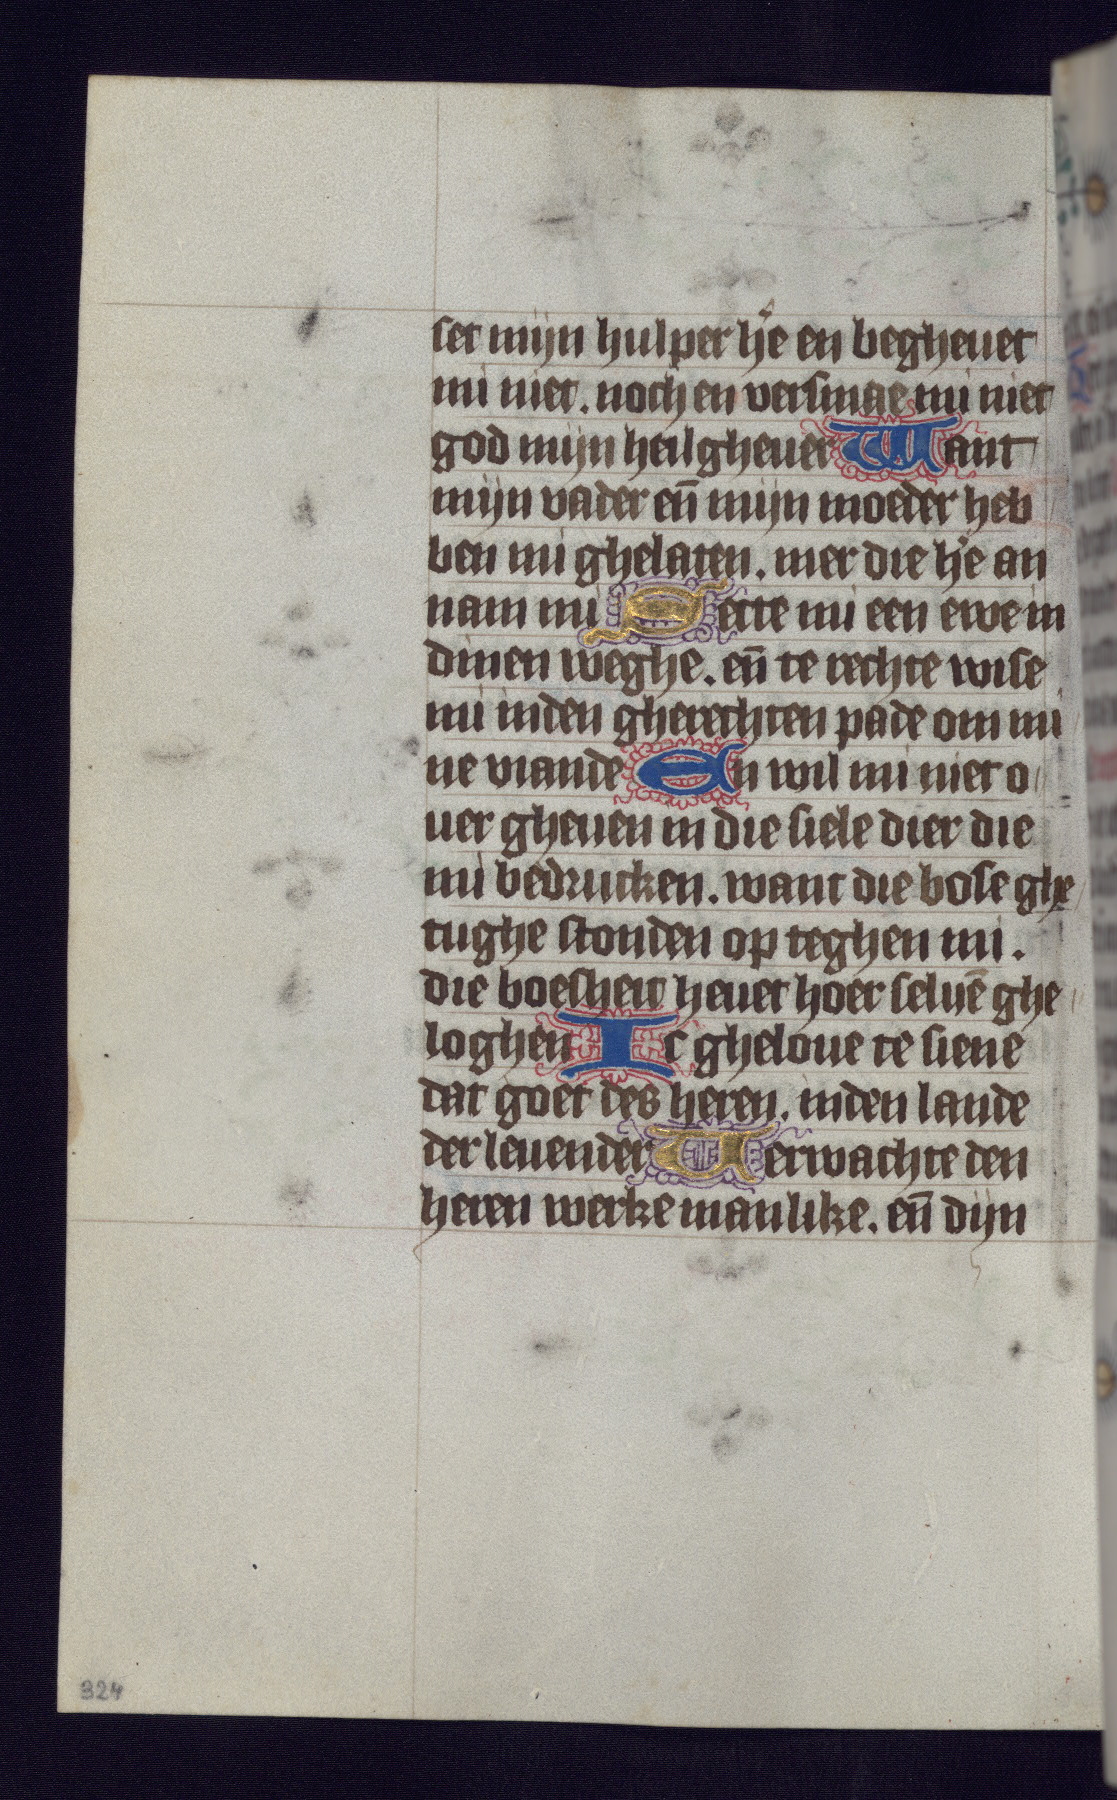 set mijn hulper h'e en begheuet
mi niet. noch en versmae mi niet
god mijn heilgheuer Want
mijn vader en̄ mijn moeder heb
ben mi ghelaten. mer die h'e an
nam mi Sette mi een ewe in
dinen weghe. en̄ te rechte wise
mi inden gherechten pade om mi
ne viande En wil mi niet o
uer gheuen in die siele dier die
mi bedrucken. want die bose ghe
tughe stonden op teghen mi.
die boesheit heuet hoer seluē ghe
loghen Ic gheloue te siene
dat goet des heren. inden lande
der leuender Verwachte den
heren werke manlike. en̄ dijn
324